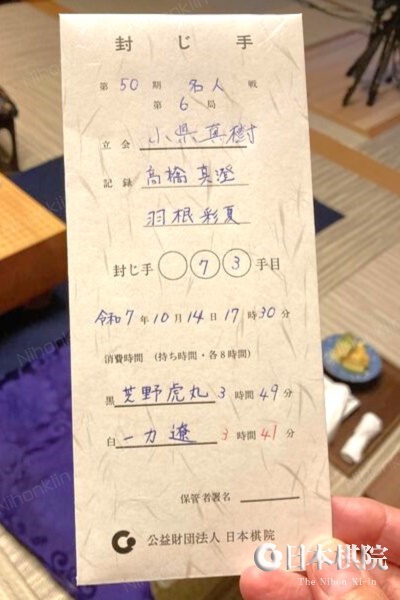 封じ手
第 50 期 名人 戦
第 6 局
立会 小県真樹
記録 高橋真澄
羽根彩夏
封じ手 7 3 手目
令和7年10月14日17時30分
消費時間 (持ち時間・各8時間)
黒 芝野虎丸 3時間49分
白 一力遼 3時間41分
保管者署名
公益財団法人 日本棋院
日本棋院
The Nihon Ki-in